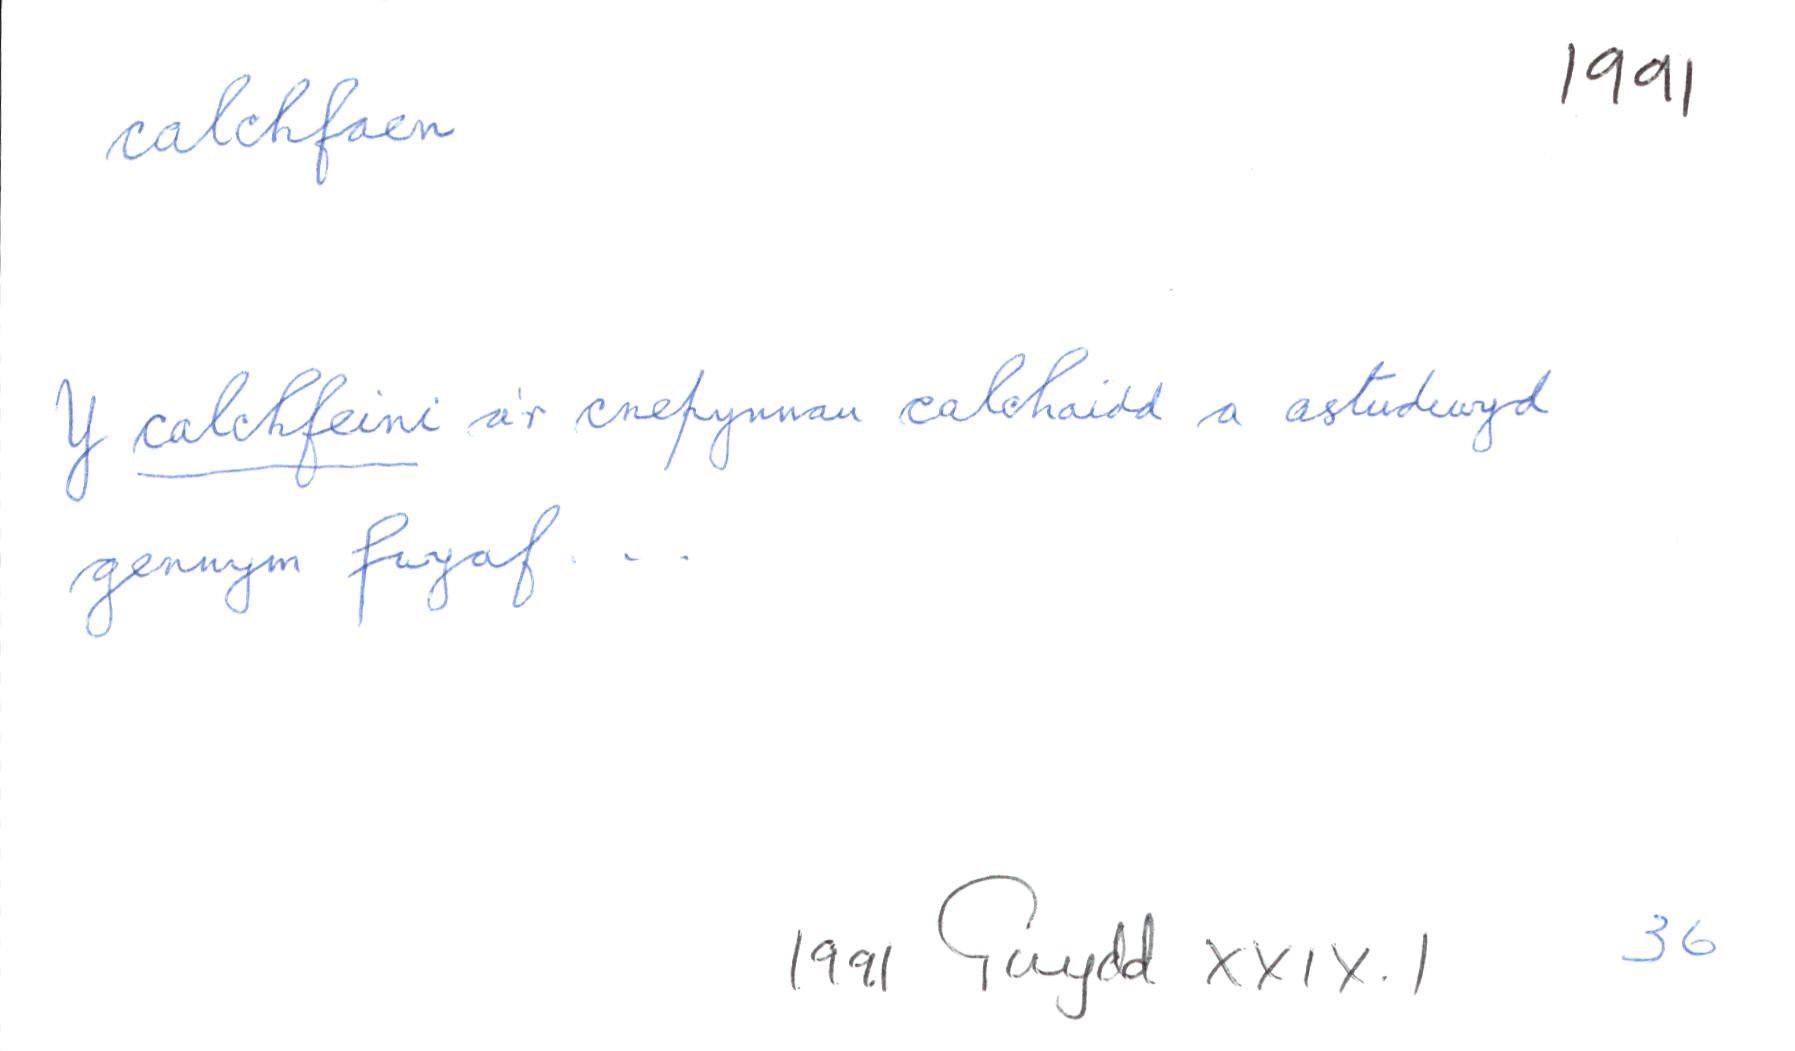 calchfaen 1991
Y calchfeini a'r cnepynnau calchaidd a astudiwyd
gennym fwyaf . . .
1991 Gwydd XXIX.1 36